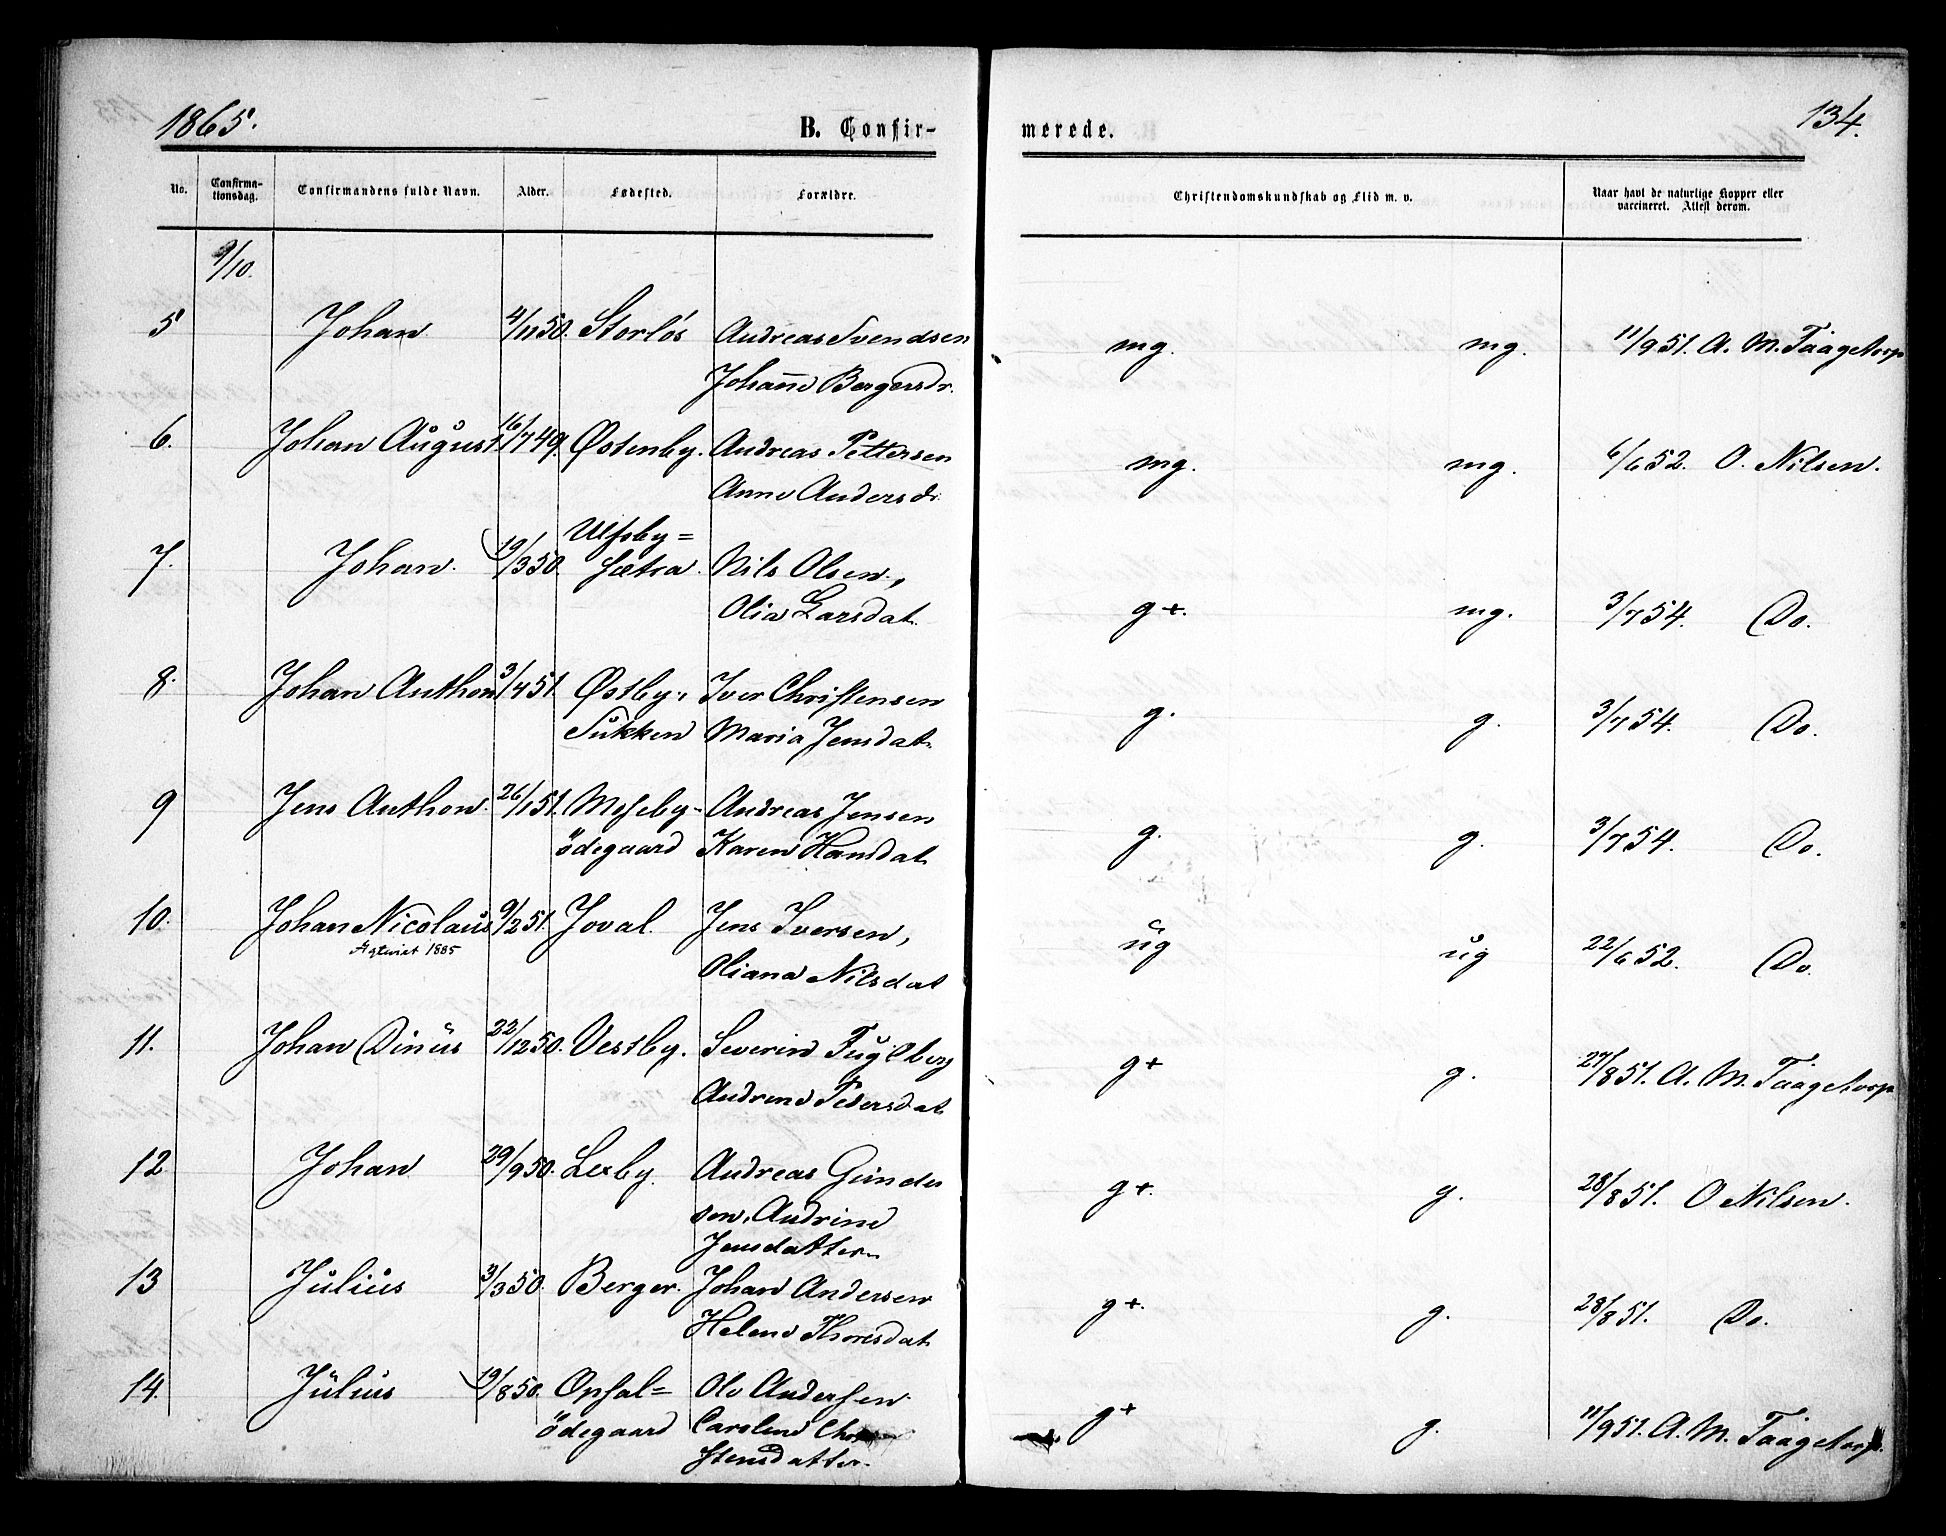 1865.
B. Confir-
merede.
134.
No.
Confirma-
tionsdag.
Confirmandens fulde Navn.
Alder.
Fødested.
Forældre.
Christendomskundskab og Flid m. v.
Naar havt de naturlige Kopper eller
vaccineret. Attest derom.
9/10.
5 Johan 4/11 50. Storløs Andreas Svendsen mg. mg. 11/9 51. A. M. Taagetorp
Johanne Bergersdr.
6. Johan August 16/7 49. Østenby. Andreas Pettersen mg. mg. 6/6 52. O. Nilsen.
Anne Andersdr.
Ulfsby=
7. Johan. 19/3 50. sætra. Nils Olsen, g+. mg. 3/7 54. Do.
Olia Larsdat.
8. Johan Anthon 3/4 51. Østby, Iver Christensen g. g. 3/7 54. Do.
Maria Jensdat.
9 Jens Anthon. 26/1 51. Moseby- Andreas Jensen g. g. 3/7 54. Do.
ödegaard Karen Hansdat.
10. Johan Nicolaus 9/2 51. Joval. Jens Iversen, ug ug 22/6 52. Do.
1885
Oliana Nilsdat
11. Johan Dinus 22/12 50. Vestby. Severin Fuglberg g+ g. 27/8 51. A. M. Taagetorp
Andrine Pedersdat.
12 Johan 29/9 50. Lexby. Andreas Gunder g+. g. 28/8 51. O Nilsen.
sen, Andrine
Jensdatter
13 Julius 3/3 50. Berger. Johan Andersen g+. g. 28/8 51. Do.
Helene Thoresdat.
14. Julius 19/8 50. Opsal= Ole Andersen g+ g. 11/9 51. A. M. Taagetorp.
ödegaard Caroline Chri
stensdatter.